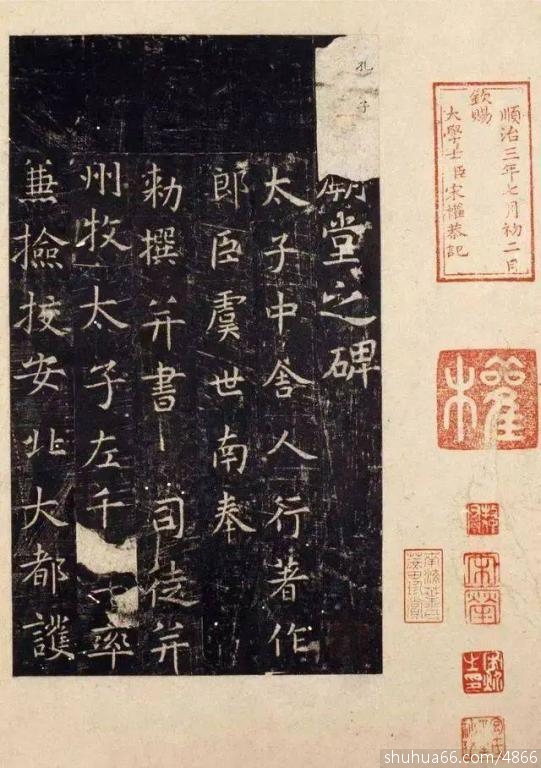 順治三年七月初二日
欽賜
大學士臣宋權恭記
權
宋犖
孔子
廟堂之碑
太子中舍人行著作
郎臣虞世南奉
勅撰并書 司徒并
州牧太子左千率
兼撿挍安北大都護
shuhua66.com/4866